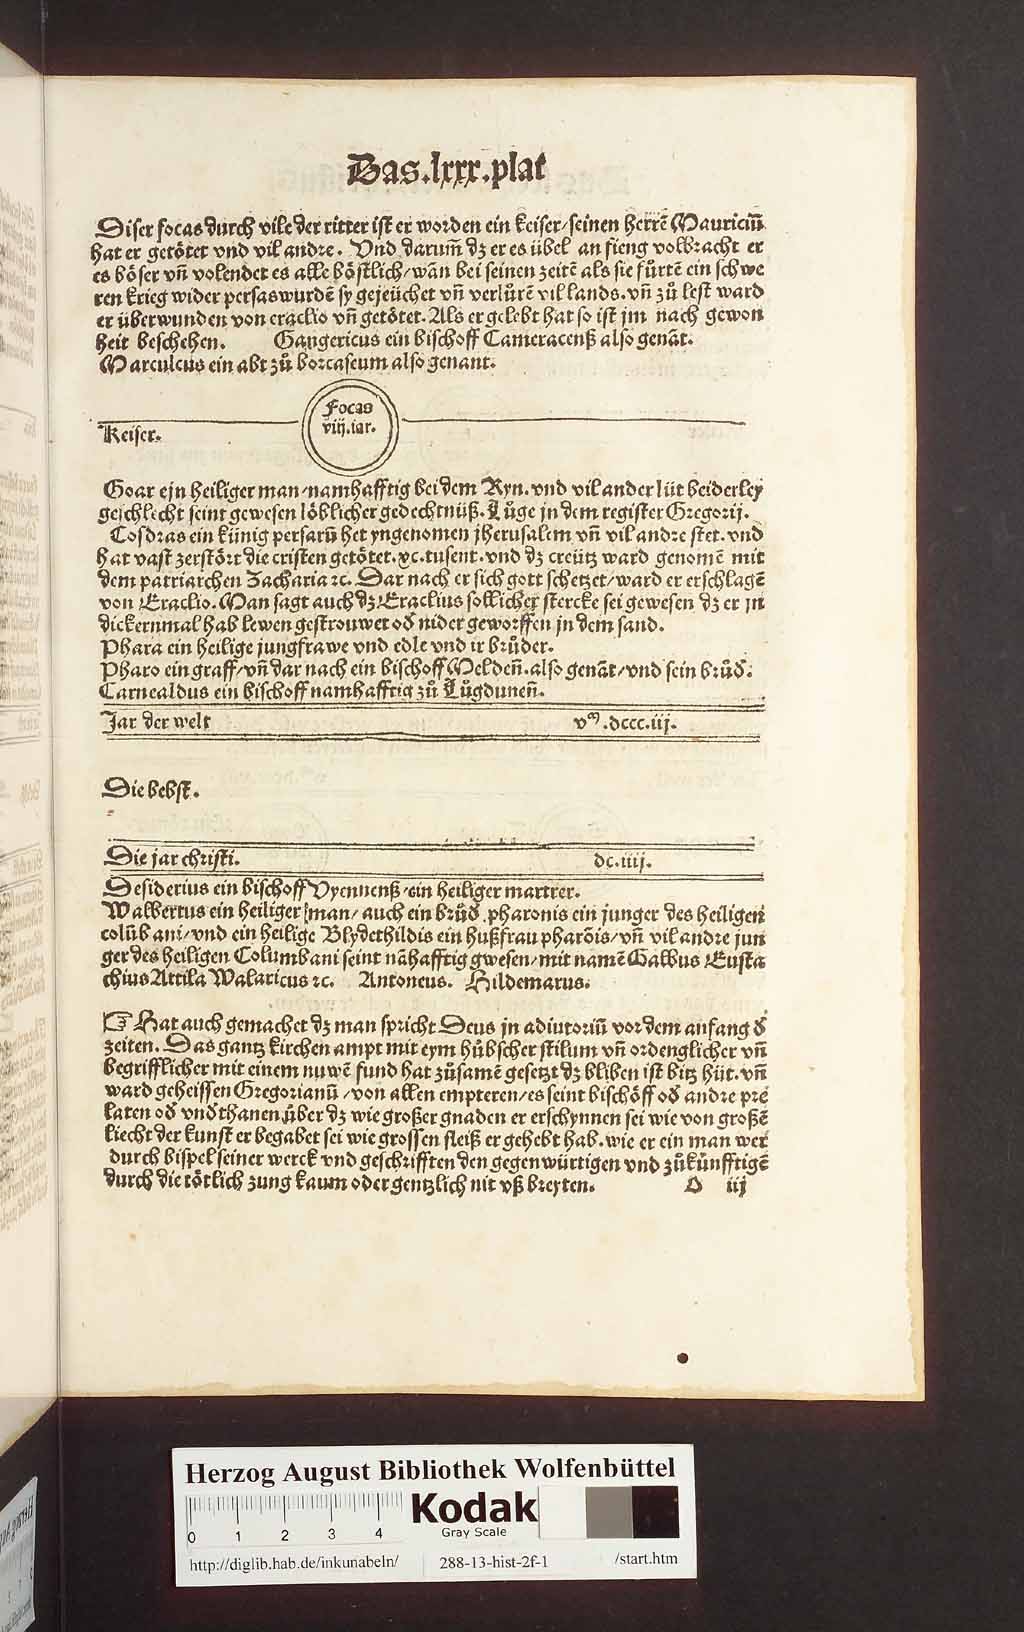 Das.lxxx.plat
Diser focas durch vile der ritter ist er worden ein keiser/seinen herrē Mauriciū
hat er getötet vnd vil andre. Vnd darum̄ dz er es übel an fieng volbracht er
es böser vn̄ volendet es alle böstlich/wan̄ bei seinen zeitē als sie fůrtē ein schwe
ren krieg wider persas wurdē sy gejeüchet vn̄ verlürē vil lands. vn̄ zů lest ward
er überwunden von eraclio vn̄ getötet. Als er gelebt hat so ist jm nach gewon
heit beschehen. Gangericus ein bischoff Cameracenß also genāt.
Marculcus ein abt zů borcaseum also genant.
Focas
viij.iar.
Keiser.
Goar ejn heiliger man/namhafftig bei dem Ryn. vnd vil ander lüt beiderley
geschlecht seint gewesen löblicher gedechtnüß. Lůge jn dem register Gregorij.
Cosdras ein künig persarū het yngenomen jherusalem vn̄ vil andre stet. vnd
hat vast zerstört die cristen getötet. xc. tusent. vnd dz creütz ward genomē mit
dem patriarchen Zacharia ꝛc. Dar nach er sich gott schetzet/ward er erschlagē
von Eraclio. Man sagt auch dz Eraclius sollicher stercke sei gewesen dz er jn
dickernmal hab lewen gestrouwet od̄ nider geworffen jn dem sand.
Phara ein heilige jungfrawe vnd edle vnd ir brůder.
Pharo ein graff/vn̄ dar nach ein bischoff Melden̄. also genāt/vnd sein brůd̄.
Carnealdus ein bischoff namhafftig zů Lůgdunen̄.
Jar der welt vᵐ.dccc.iij.
Die bebst.
Die jar christi. dc.iiij.
Desiderius ein bischoff Vyennenß/ein heiliger martrer.
Walbertus ein heiliger man/auch ein brůd̄ pharonis ein junger des heiligen
colūbani/vnd ein heilige Blydethildis ein hußfrau pharōis/vn̄ vil andre jun
ger des heiligen Columbani seint nāhafftig gwesen/mit namē Gallus Eusta
chius Attila Walaricus ꝛc. Antoneus. Hildemarus.
☞ Hat auch gemachet dz man spricht Deus jn adiutoriū vor dem anfang d̄
zeiten. Das gantz kirchen ampt mit eym hübscher stilum vn̄ ordenglicher vn̄
begrifflicher mit einem nuwē fund hat zůsamē gesetzt dz bliben ist bitz hüt. vn̄
ward geheissen Gregorianū/von allen empteren/es seint bischöff od̄ andre pre
laten od̄ vnd̄thanen über dz wie großer gnaden er erschynnen sei wie von großē
liecht der kunst er begabet sei wie grossen fleiß er gehebt hab. wie er ein man wer
durch bispel seiner werck vnd geschrifften den gegenwürtigen vnd zůkünfftigē
durch die tötlich zung kaum oder gentzlich nit vß breyten. O iij
Herzog August Bibliothek Wolfenbüttel
0 1 2 3 4 Kodak
Gray Scale
http://diglib.hab.de/inkunabeln/ 288-13-hist-2f-1 /start.htm